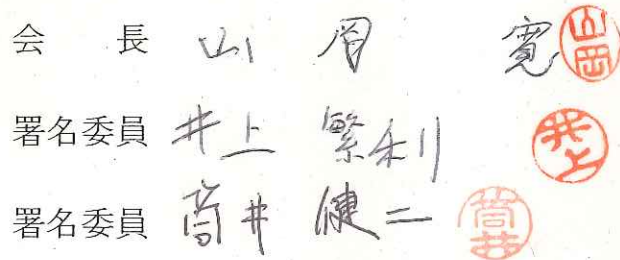 会長 山岡 寛 山岡
署名委員 井上 繁利 井上
署名委員 筒井 健二 筒井